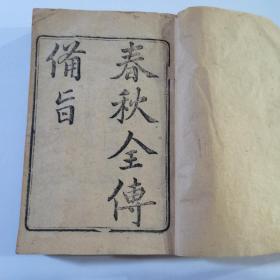 春秋全傳
備旨